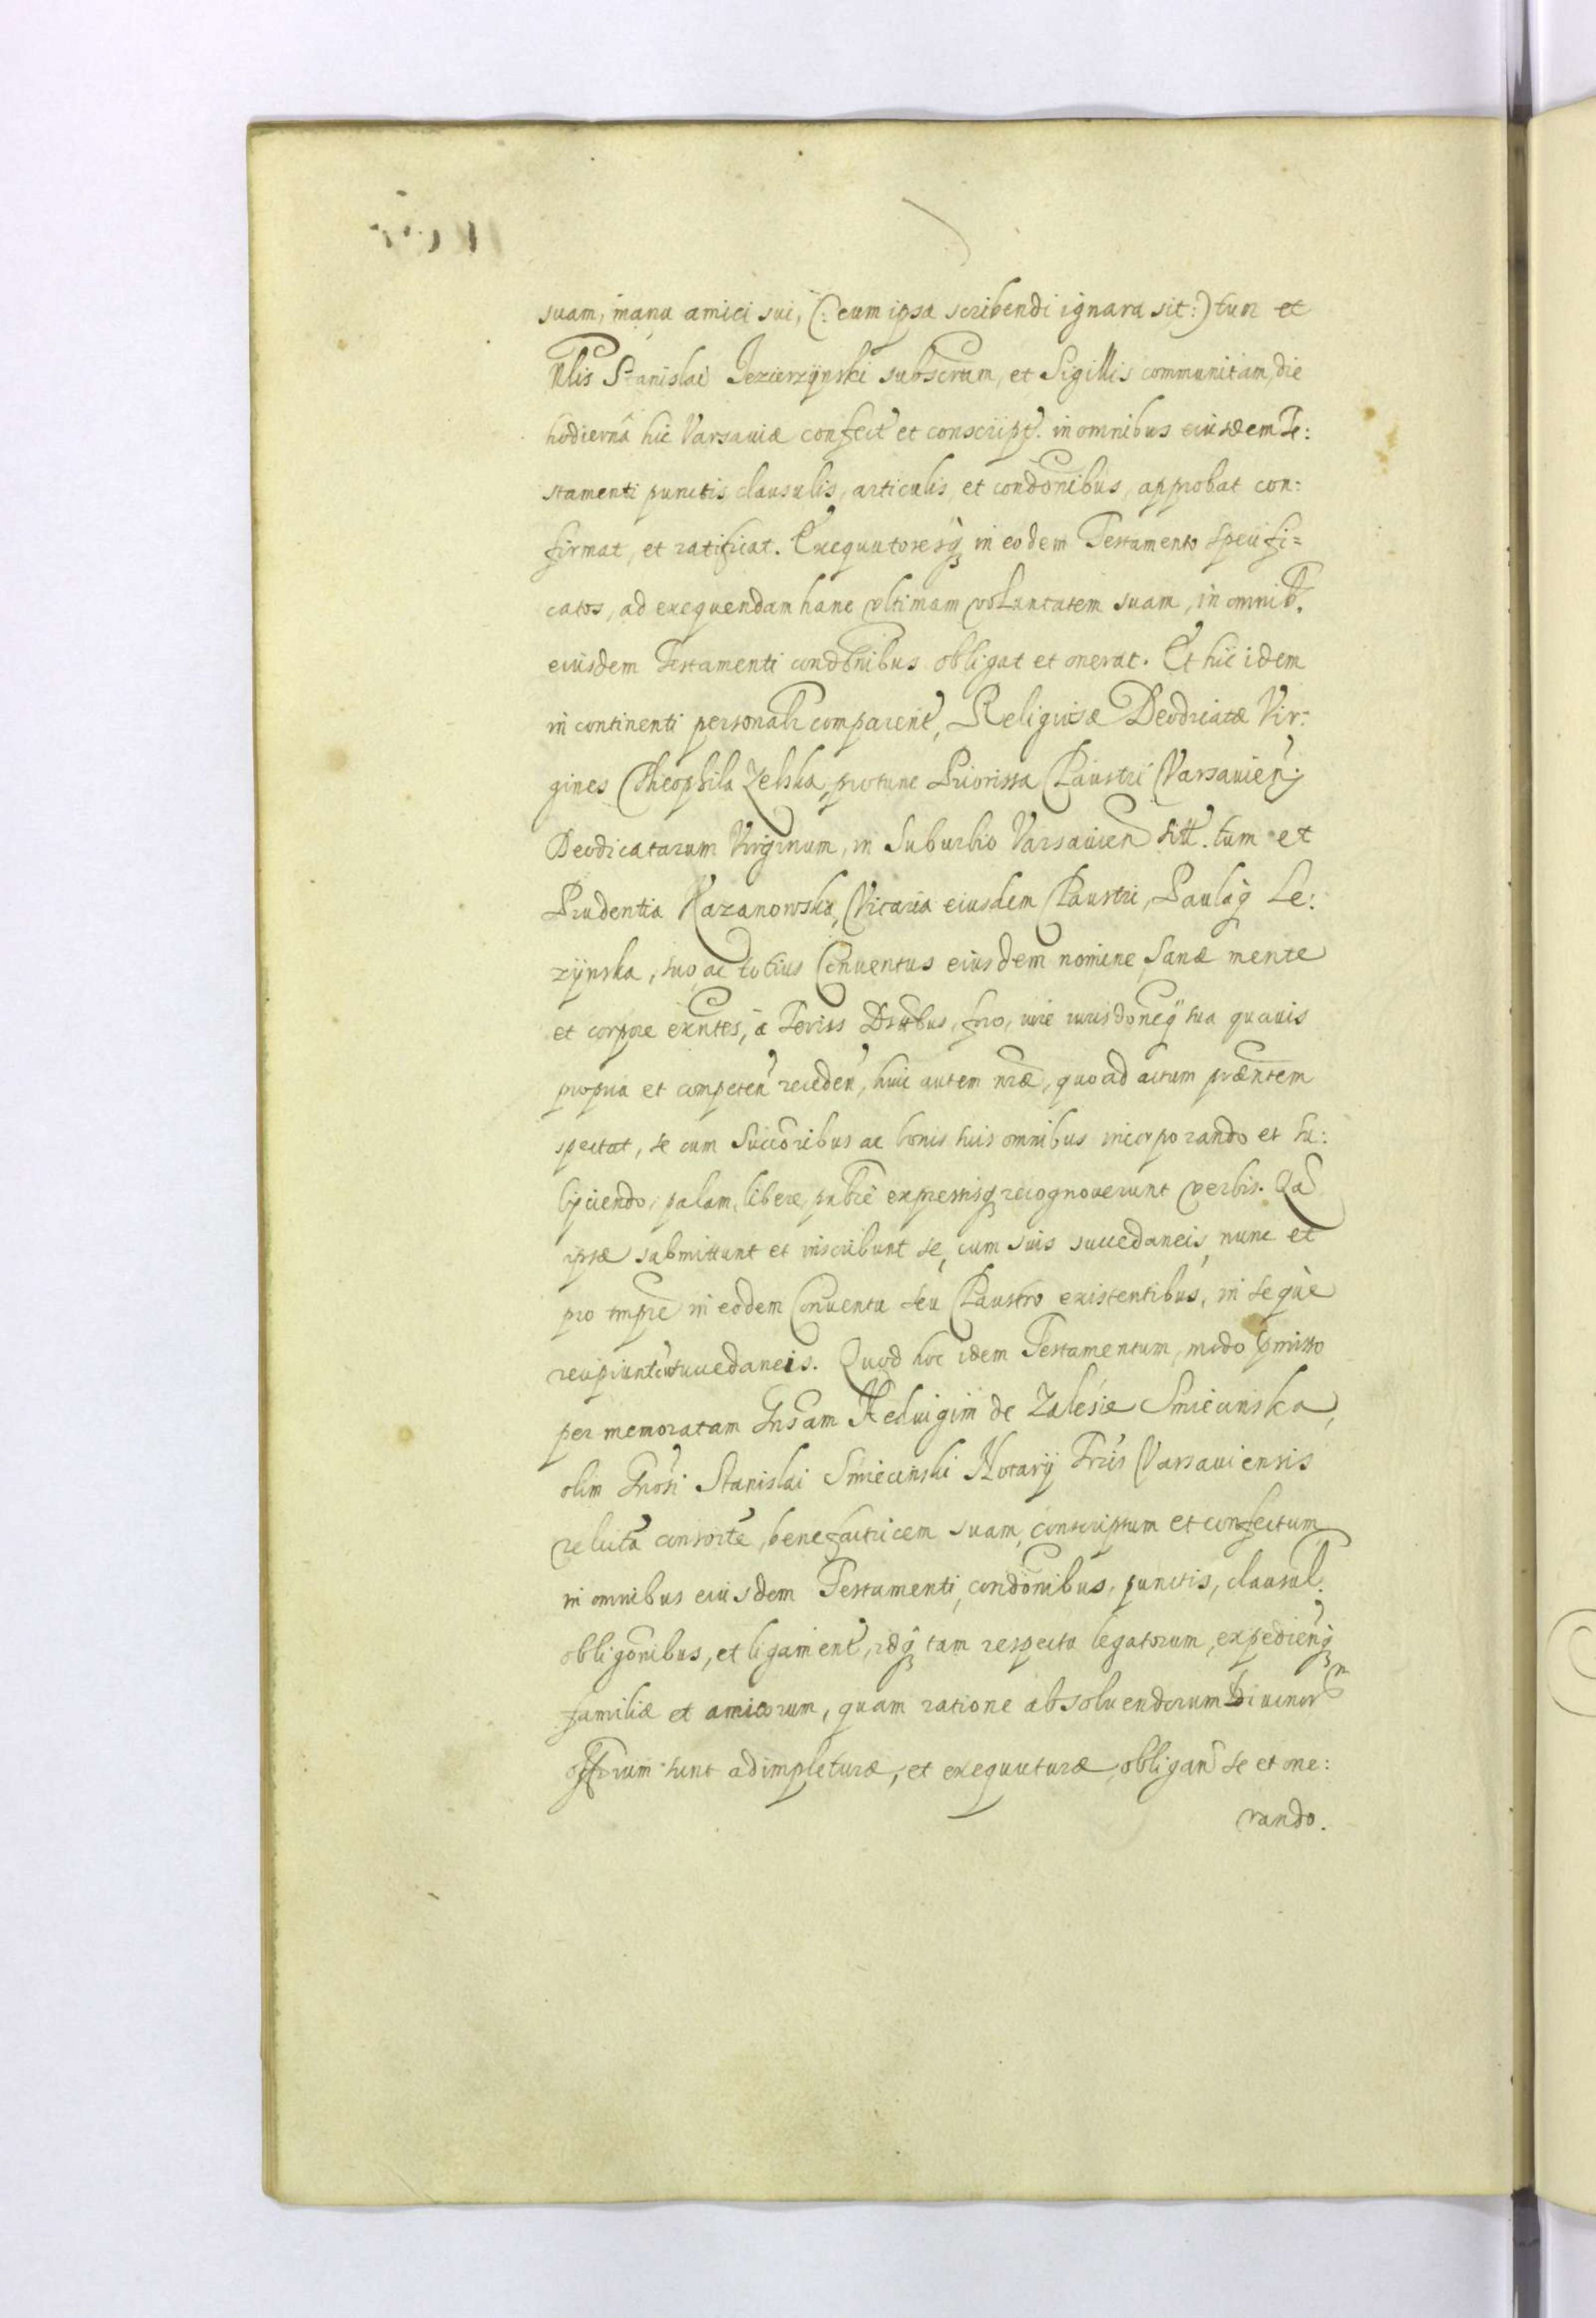 suam, manu amici sui, (: cum ipsa scribendi ignara sit :) tum et
Nlis Stanislai Jezierzÿnski subscram, et Sigillis communitam, die
hodierna hic Varsaviæ confecit et conscript. in omnibus eiusdem Te:
stamenti punctis, clausulis, articulis, et condonibus, approbat con:
firmat, et ratificat. Exequutoresq3 in eodem Testamento specifi=
catos, ad exequendam hanc vltimam voluntatem suam, in omnib.
eiusdem Testamenti condonibus obligat et onerat. Et hic idem
in continenti personalr comparent, Religiosæ Deodicatæ Vir:
gines Theophila Zelska, protunc Priorissa Claustri Varsavien,
Deodicatarum Virginum, in Suburbio Varsavien sitt. tum et
Prudentia Kazanowska, Vicaria eiusdem Claustri, Paulaq Le:
zÿnska, suo, ac totius Conventus eiusdem nomine, sanæ mente
et corpore exntes, à Terriss Dstrbus, foro, iure iurisdoneq sua quavis
propria et competen receden, huic autem nræ, quo ad actum præntem
spectat, se cum Succoribus ac bonis suis omnibus incorporando et su:
bijciendo, palam, libere, publce expressisq3 recognoverunt verbis. Qa
ipsæ submittunt et inscribunt se, cum suis succedaneis, nunc et
pro tmpre in eodem Conventu seu Claustro existentibus, in seque
recipiunt succedaneis. Quod hoc idem Testamentum, modo pmisso
per memoratam Gnsam Hedvigim de Zalesie Smiecinska,
olim Gnosi Stanislai Smiecinski Notarij Trris Varsaviensis
relicta consorte, benefactricem suam, conscriptum et confectum,
in omnibus eiusdem Testamenti, condonibus, punctis, clausul.
obligonibus, et ligament, idq3 tam respectu legatorum, expedienq3
familiæ et amicorum, quam ratione absoluendorum Divinor
offrium sunt adimpleturæ, et exequuturæ, obligan se et one:
rando.